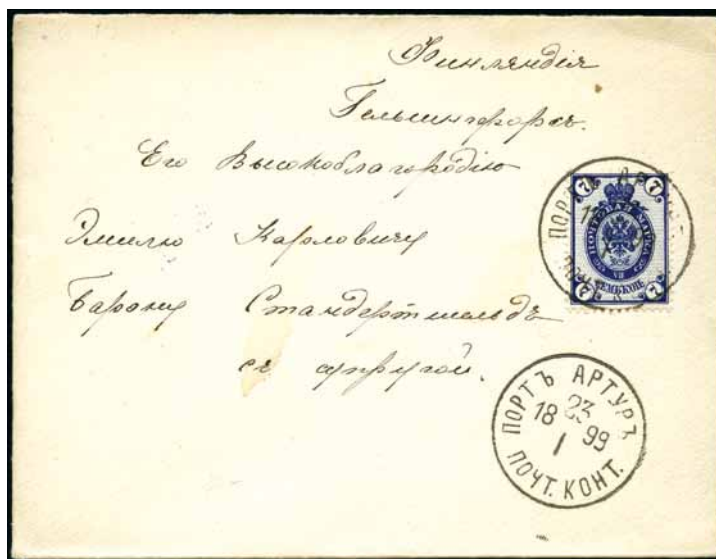 Финляндія
Гельсингфорсъ.
Его Высокоблагородію
Эмилю Карловичу
Барону Стандертшельдъ
съ супругой.
7 7
ПОЧТОВАЯ МАРКА
СЕМЬ КОП.
7 7
ПОРТЪ АРТУРЪ
ПОРТЪ АРТУРЪ
23
18 99
I
ПОЧТ. КОНТ.